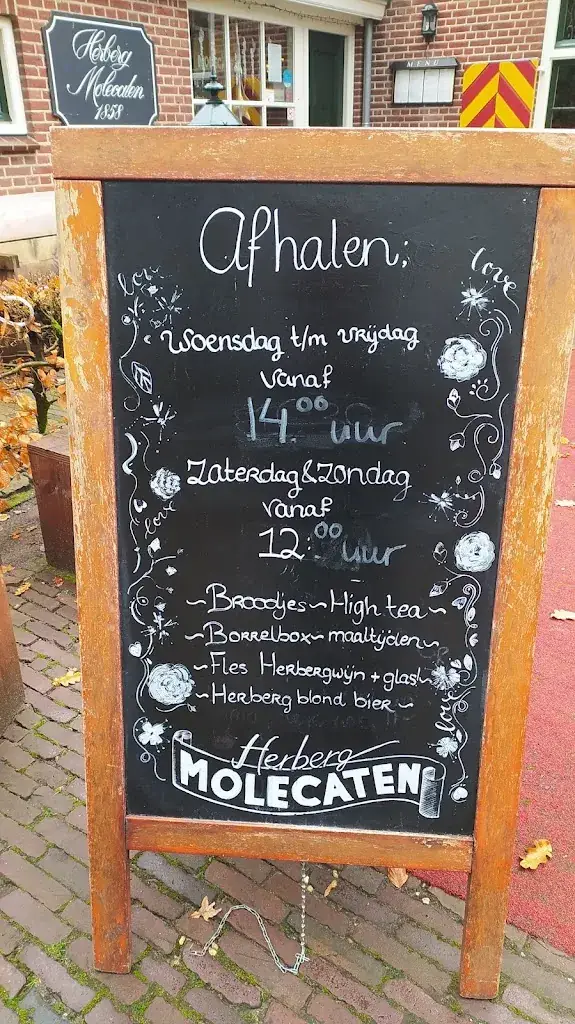 Herberg
Molecaten
1858
MENU
Afhalen:
love
love
Woensdag t/m vrijdag
vanaf
14.00 uur
Zaterdag & Zondag
vanaf
12:00 uur
love
~Broodjes~High tea~
~Borrelbox~maaltijden~
~Fles Herbergwijn + glas~
~Herberg blond bier~
love
Herberg
MOLECATEN